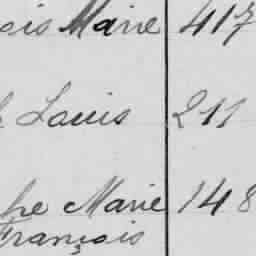 ois Marie 417
Louis 211
he Marie 148
François